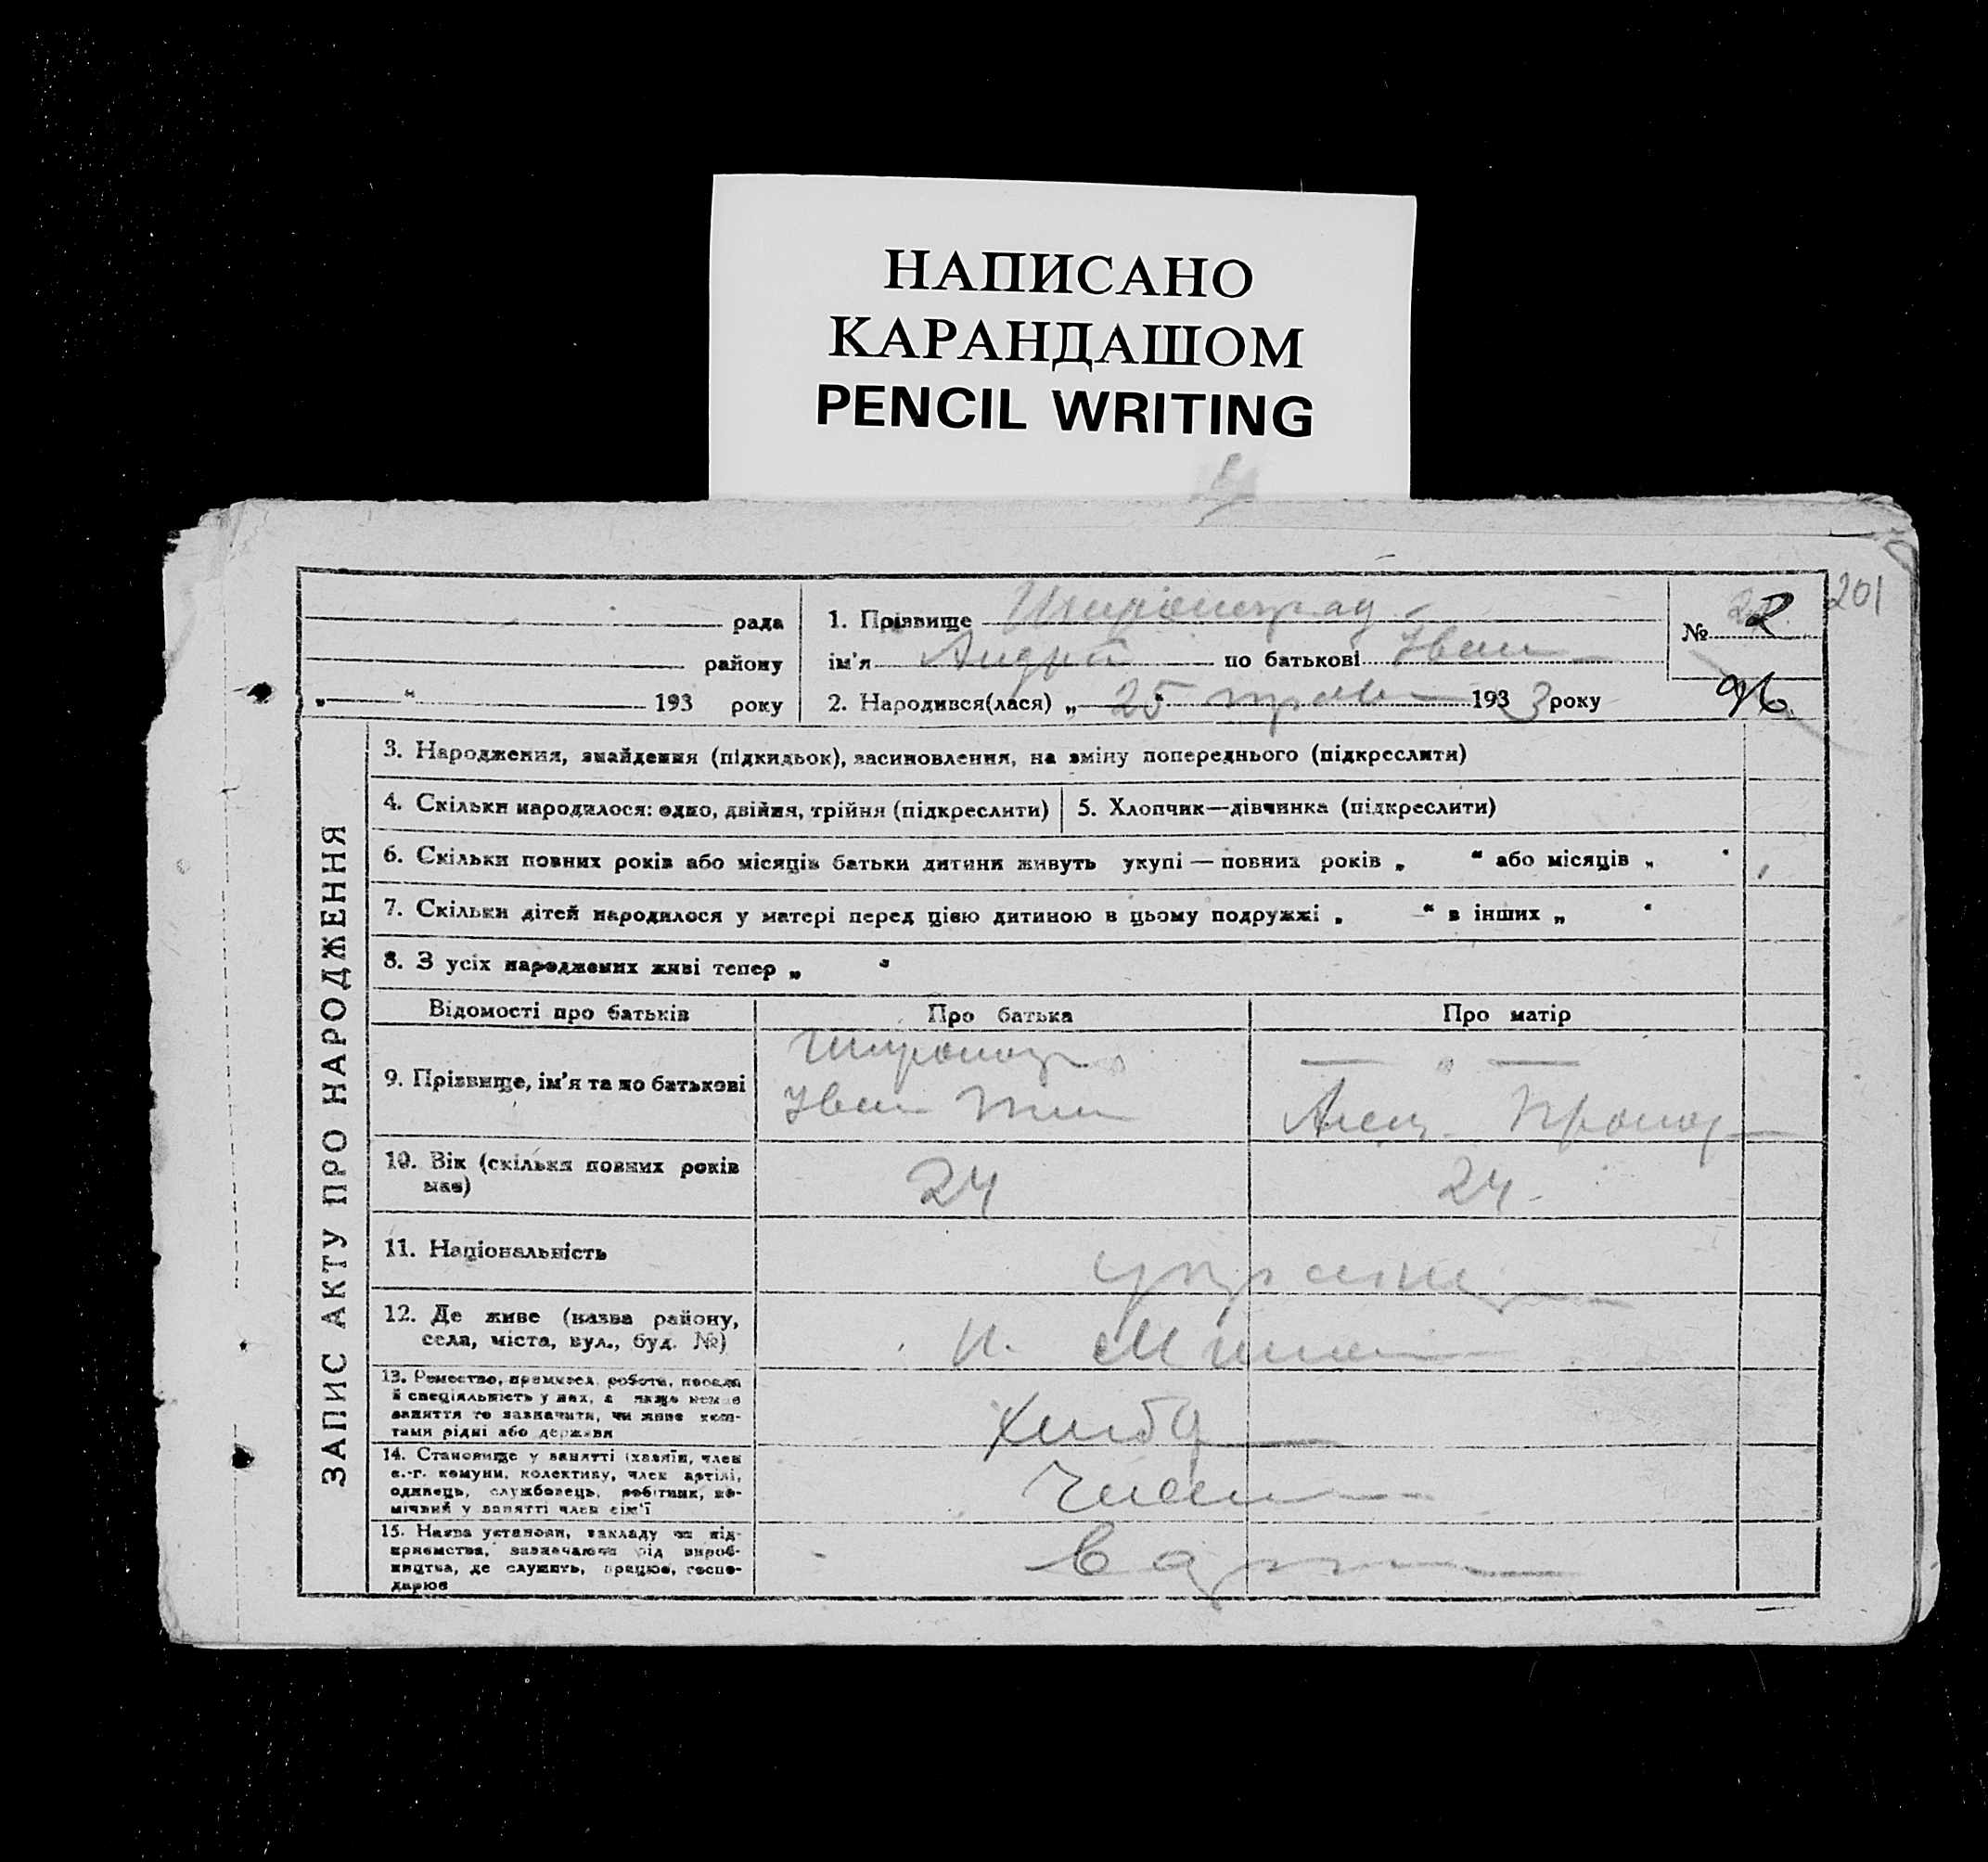 НАПИСАНО
КАРАНДАШОМ
PENCIL WRITING
201
рада
району
„ “ 193 року
1. Прізвище
ім'я Андрій по батькові Іван
2. Народився(лася) „ 25 “ трав 1933 року
№ 2
96
ЗАПИС АКТУ ПРО НАРОДЖЕННЯ
3. Народження, знайдення (підкидьок), засиновлення, на зміну попереднього (підкреслити)
4. Скільки народилося: одно, двійня, трійня (підкреслити)
5. Хлопчик—дівчинка (підкреслити)
6. Скільки повних років або місяців батьки дитини живуть укупі — повних років „ “ або місяців „ “
7. Скільки дітей народилося у матері перед цією дитиною в цьому подружжі „ “ в інших „ “
8. З усіх народжених живі тепер „ “
Відомості про батьків
Про батька
Про матір
9. Прізвище, ім'я та по батькові
— „ —
Іван
10. Вік (скільки повних років
має)
24
24
11. Національність
12. Де живе (назва району,
села, міста, вул., буд. №)
13. Ремество, промисел, робота, посада
й спеціяльність у них, а якщо немає
заняття то зазначити, чи живе кош-
тами рідні або держави
14. Становище у занятті (хазяїн, член
с.-г. комуни, колективу, член артілі,
одинець, службовець, робітник, по-
мічний у занятті член сім'ї
15. Назва установи, закладу чи під-
приємства, зазначаючи рід вироб-
ництва, де служить, працює, госпо-
дарює